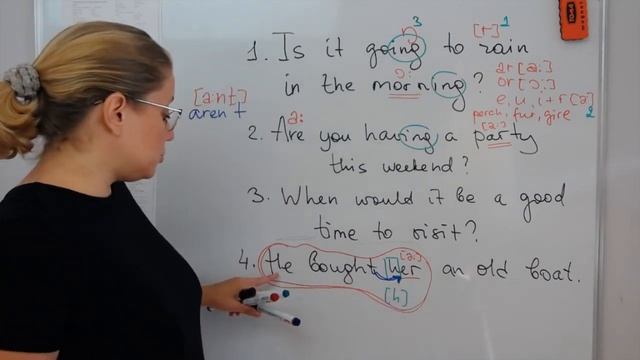 [r] 1
3
1. Is it going to rain
ar [a:]
ɔ:
or [ɔ:]
in the morning?
e, u, i + r [ə]
perch, fur, gire 2
[a:nt]
aren t
a:
[a:]
2. Are you having a party
this weekend?
3. When would it be a good
time to visit?
[ə:]
4. He bought her an old boat.
[h]